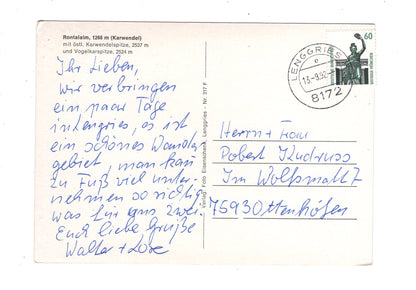 Rontalalm, 1268 m (Karwendel)
mit östl. Karwendelspitze, 2537 m
und Vogelkarspitze, 2524 m
Ihr Lieben,
wir verbringen
ein paar Tage
in Lengries, es ist
ein schönes Wander
gebiet, man kann
zu Fuß viel unter-
nehmen so richtig
was für uns zwei.
Euch liebe Grüße
Walter + Lore
Verlag: Foto Eisenschmid, Lenggries - Nr. 217 F
LENGGRIES
e
13.-9.92
8172
60
Herrn + Frau
Robert
Im Wolfsmatt 7
75930 Ottenhöfen